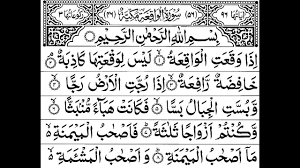 اٰيَاتُهَا ٩٦ (٥٦) سُوْرَةُ الْوَاقِعَةِ مَكِّيَّةٌ (٤٦) رُكُوْعَاتُهَا ٣
بِسْمِ اللّٰهِ الرَّحْمٰنِ الرَّحِيْمِ
اِذَا وَقَعَتِ الْوَاقِعَةُ ۙ﴿١﴾ لَيْسَ لِوَقْعَتِهَا كَاذِبَةٌ ۘ﴿٢﴾
خَافِضَةٌ رَّافِعَةٌ ۙ﴿٣﴾ اِذَا رُجَّتِ الْاَرْضُ رَجًّا ۙ﴿٤﴾
وَّبُسَّتِ الْجِبَالُ بَسًّا ۙ﴿٥﴾ فَكَانَتْ هَبَآءً مُّنْۢبَثًّا ۙ﴿٦﴾
وَّكُنْتُمْ اَزْوَاجًا ثَلٰثَةً ؕ﴿٧﴾ فَاَصْحٰبُ الْمَيْمَنَةِ ۙ
مَاۤ اَصْحٰبُ الْمَيْمَنَةِ ؕ﴿٨﴾ وَاَصْحٰبُ الْمَشْـَٔمَةِ ۙ